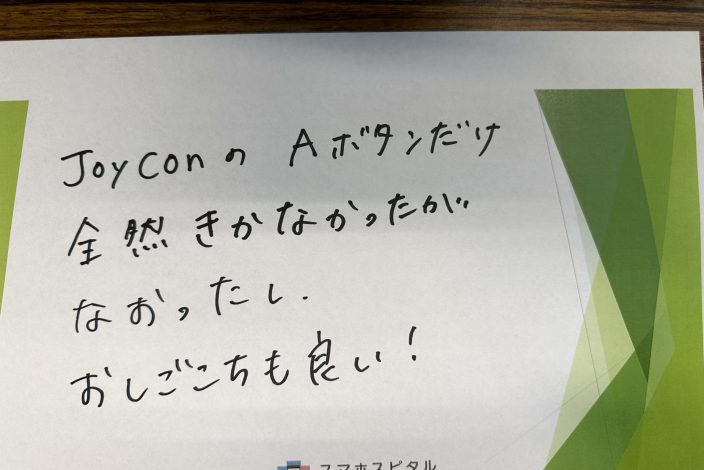 JoyConの Aボタンだけ
全然きかなかったが
なおったし.
おしごこちも良い!
スマホスピタル